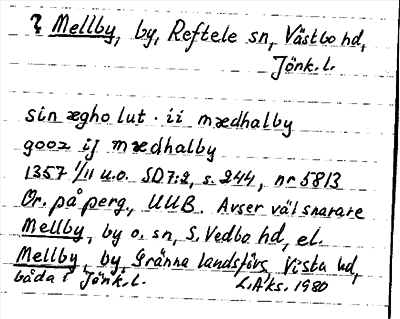 ? Mellby, by, Reftele sn, Västbo hd,
Jönk. l.
sin ægho lut · ii mædhalby
gooz ij mædhalby
1357 1/11 u.o. SD 7:2, s. 244, nr 5813
Or. på perg., UUB. Avser väl snarare
Mellby, by o. sn, S. Vedbo hd, el.
Mellby, by, Gränna landsförs, Vista hd,
båda i Jönk. l.
L.Å:ks. 1980